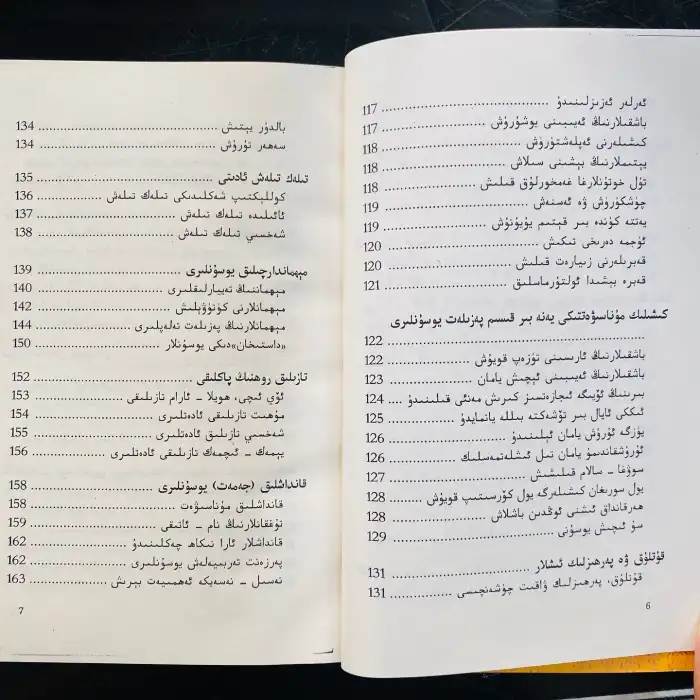 ئەرلەر ئەزىزلىنىدۇ ........ 117
باشقىلارنىڭ ئەيىبىنى يوشۇرۇش ........ 117
كىشىلەرنى ئەپلەشتۈرۈش ........ 118
يېتىملارنىڭ بېشىنى سىلاش ........ 118
تۇل خوتۇنلارغا غەمخورلۇق قىلىش ........ 118
چۈشكۈرۈش ۋە ئەسنەش ........ 119
يەتتە كۈندە بىر قېتىم يۇيۇنۇش ........ 119
ئۈجمە دەرىخى تىكىش ........ 120
قەبرىلەرنى زىيارەت قىلىش ........ 120
قەبرە بېشىدا ئولتۇرماسلىق ........ 121
كىشىلىك مۇناسىۋەتتىكى يەنە بىر قىسىم پەزىلەت يوسۇنلىرى
........ 122
باشقىلارنىڭ ئارىسىنى تۈزەپ قويۇش ........ 122
باشقىلارنىڭ ئەيىبىنى ئېچىش يامان ........ 123
بىرىنىڭ ئۆيىگە ئىجازەتسىز كىرىش مەنئى قىلىنىدۇ ........ 124
ئىككى ئايال بىر تۆشەكتە بىللە ياتمايدۇ ........ 125
يۈزگە ئۇرۇش يامان ئېلىنىدۇ ........ 126
ئۇرۇشقاندىمۇ يامان تىل ئىشلەتمەسلىك ........ 126
سوۋغا - سالام قىلىشىش ........ 127
يول سورىغان كىشىلەرگە يول كۆرسىتىپ قويۇش ........ 128
ھەرقانداق ئىشنى ئوڭدىن باشلاش ........ 128
سۇ ئىچىش يوسۇنى ........ 129
قۇتلۇق ۋە پەرھىزلىك ئىشلار ........ 131
قۇتلۇق، پەرھىزلىك ۋاقىت چۈشەنچىسى ........ 131
6
بالدۇر يېتىش ........ 134
سەھەر تۇرۇش ........ 134
تىلەك تىلەش ئادىتى ........ 135
كوللېكتىپ شەكلىدىكى تىلەك تىلەش ........ 136
ئائىلىدە تىلەك تىلەش ........ 137
شەخسىي تىلەك تىلەش ........ 138
مېھماندارچىلىق يوسۇنلىرى ........ 139
مېھماننىڭ تەييارلىقلىرى ........ 140
مېھمانلارنى كۈتۈۋېلىش ........ 142
مېھمانلارنىڭ پەزىلەت تەلەپلىرى ........ 144
«داستىخان»دىكى يوسۇنلار ........ 150
تازىلىق روھنىڭ پاكلىقى ........ 152
ئۆي ئىچى، ھويلا - ئارام تازىلىقى ........ 153
مۇھىت تازىلىقى ئادەتلىرى ........ 154
شەخسىي تازىلىق ئادەتلىرى ........ 155
يېمەك - ئىچمەك تازىلىقى ئادەتلىرى ........ 156
قانداشلىق (جەمەت) يوسۇنلىرى ........ 158
قانداشلىق مۇناسىۋەت ........ 158
تۇغقانلارنىڭ نام - ئاتىقى ........ 159
قانداشلار ئارا نىكاھ چەكلىنىدۇ ........ 162
پەرزەنت تەربىيەلەش يوسۇنلىرى ........ 162
نەسىل - نەسەبكە ئەھمىيەت بېرىش ........ 163
7